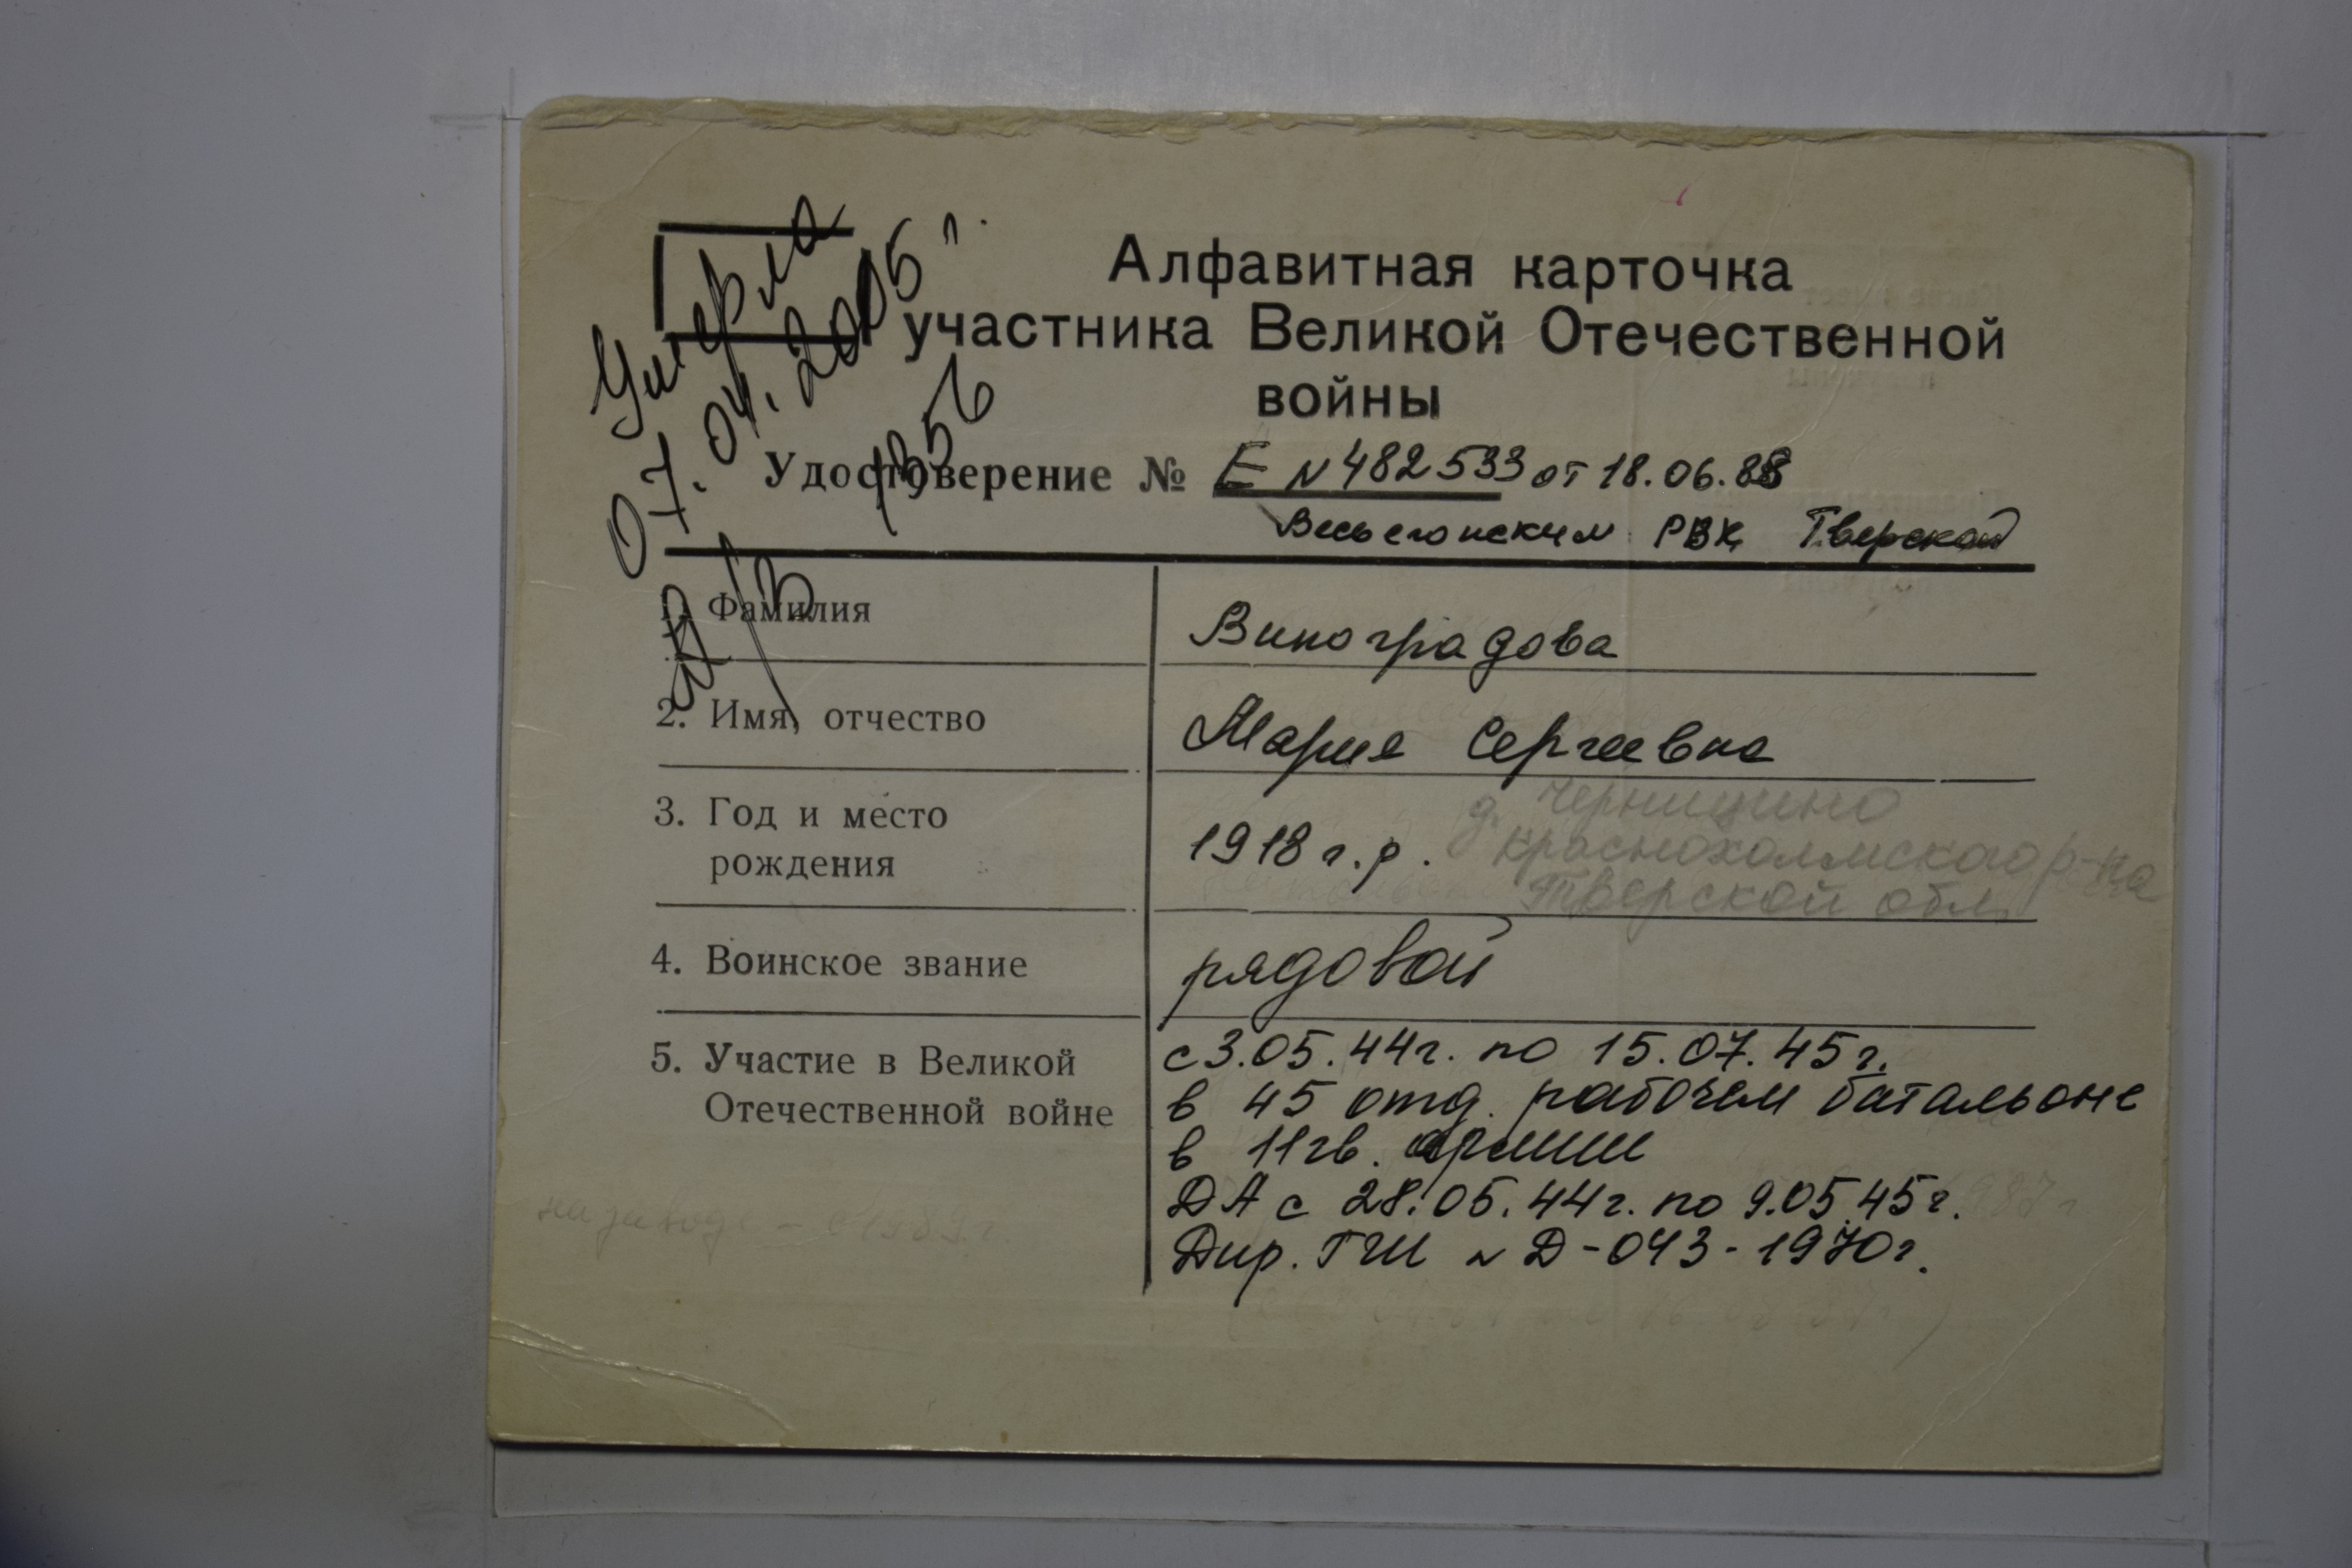 Умерла
07.04.2005 г.
а/з 1356
Алфавитная карточка
участника Великой Отечественной
войны
Удостоверение № Е N 482533 от 18.06.88
Весьегонским РВК Тверской
1. Фамилия Виноградова
2. Имя, отчество Мария Сергеевна
3. Год и место
рождения 1918 г.р.
д. Чернищино
Краснохолмского р-на
Тверской обл.
4. Воинское звание рядовой
5. Участие в Великой
Отечественной войне
с 3.05.44г. по 15.07.45г.
в 45 отд. рабочем батальоне
в 11 гв. армии
ДА с 28.05.44г. по 9.05.45г.
Дир. ГШ N Д-043-1970г.